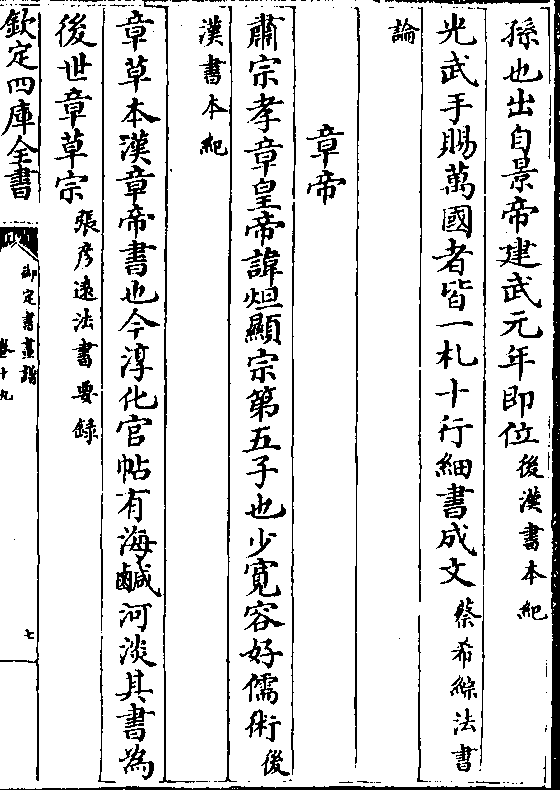 孫也出自景帝建武元年即位後漢書本紀
光武手賜萬國者皆一札十行細書成文蔡希綜法書
論
章帝
肅宗孝章皇帝諱炟顯宗第五子也少寛容好儒術後
漢書本紀
章草本漢章帝書也今淳化官帖有海鹹河淡其書為
後世章草宗張彦遠法書要錄
欽定四庫全書
御定書畫譜
卷十九
七